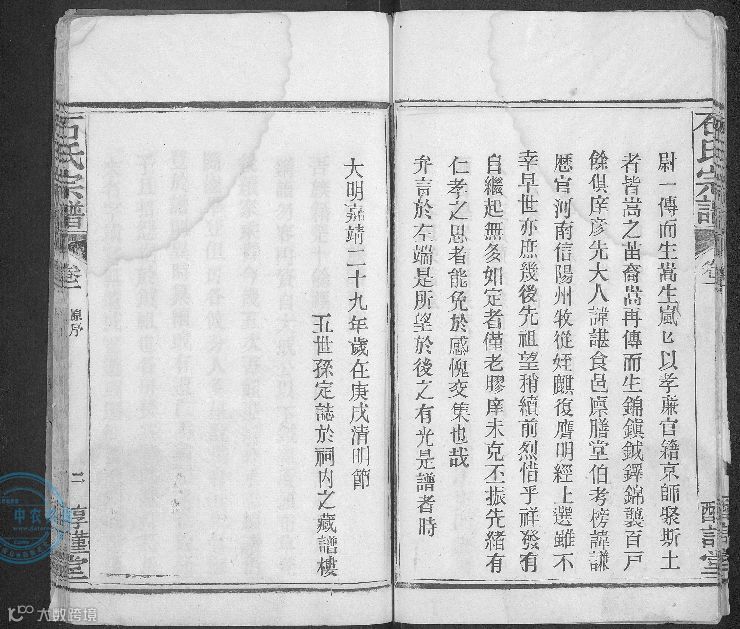 石氏宗譜
尉一傳而生嵩生嵐㠯以孝廉官籍京師聚斯土
者皆嵩之苗裔嵩再傳而生錦鎭鉞鐸錦襲百戸
餘俱庠彦先大人諱諶食邑廪膳堂伯考榜諱謙
歴官河南信陽州牧從姪麒復膺明經上選雖不
幸早世亦庶幾後先祖望稍續前烈惜乎祥發有
自繼起無多如定者僅老膠庠未克丕振先緒有
仁孝之思者能免於感愧交集也哉
弁言於左端是所望於後之有光是譜者時
大明嘉靖二十九年歲在庚戌清明節
五世孫定誌於祠内之藏譜樓
石氏宗譜
卷一
原序
二
惇謹堂
大数跨境